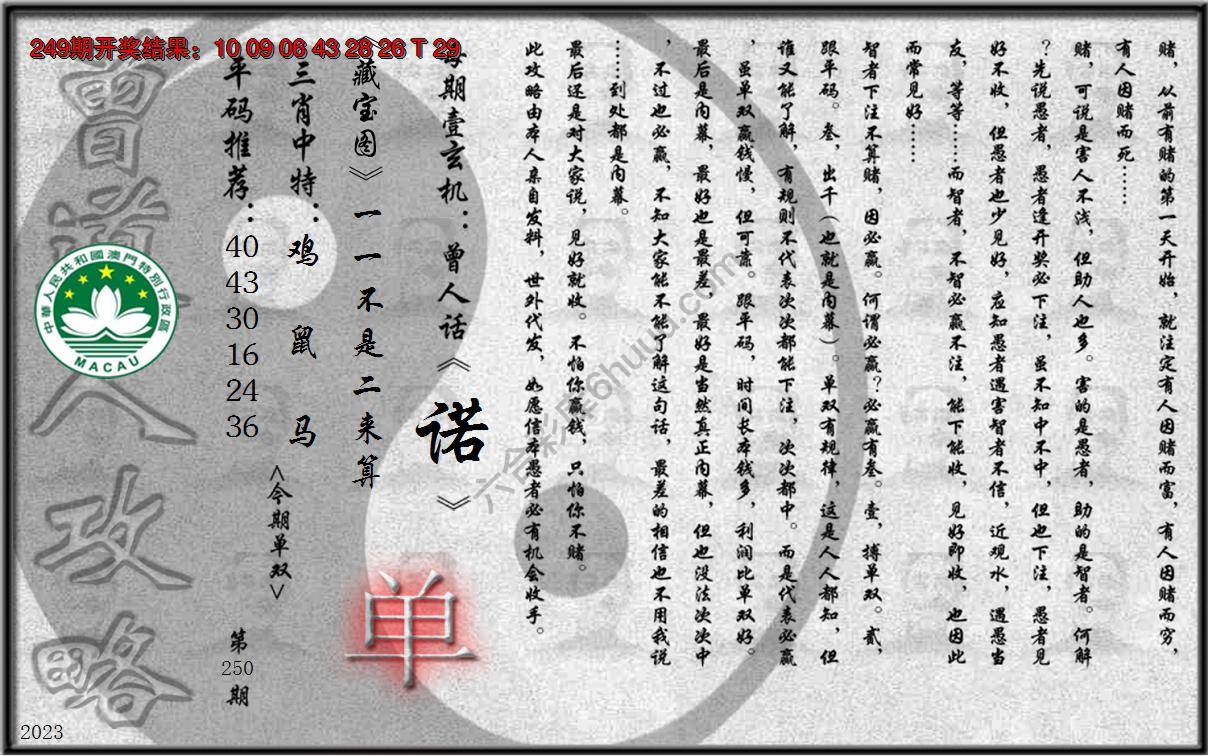 249期开奖结果：10 09 06 43 28 26 T 29
赌，从前有赌的第一天开始，就注定有人因赌而富，有人因赌而穷，
有人因赌而死……
赌，可说是害人不浅，但助人也多。害的是愚者，助的是智者。何解
？先说愚者，愚者逢开奖必下注，虽不知中不中，但也下注，愚者见
好不收，但愚者也少见好，应知愚者遇害智者不信，近观水，遇愚当
友，等等……而智者，不智必赢不注，能下能收，见好即收，也因此
而常见好……
智者下注不算赌，因必赢。何谓必赢？必赢有叁。壹，搏单双。贰，
跟平码。叁，出千（也就是内幕）。单双有规律，这是人人都知，但
谁又能了解，有规则不代表次次都能下注，次次都中。而是代表必赢
，虽单双赢钱慢，但可靠。跟平码，时间长本钱多，利润比单双好。
最后是内幕，最好也是最差，最好是当然真正内幕，但也没法次次中
，不过也必赢，不知大家能不能了解这句话，最差的相信也不用我说
……到处都是内幕。
最后还是对大家说，见好就收。不怕你赢钱，只怕你不赌。
此攻略由本人亲自发料，世外代发，如愿信本愚者必有机会收手。
每期壹玄机：曾人话《诺》
《藏宝图》一一不是二来算
三肖中特：鸡 鼠 马
<今期单双>
单
平码推荐：
40
43
30
16
24
36
第
250
期
曾道人攻略
中華人民共和國澳門特別行政區
MACAU
六合彩库6huuu.com
2023